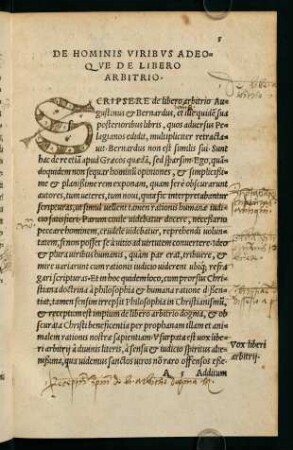 DE HOMINIS VIRIBVS ADEO-
QVE DE LIBERO
ARBITRIO.
SCRIPSERE de libero arbitrio Au
gustinus & Bernardus, et ille quidē sua
posterioribus libris, quos aduersus Pe
lagianos edidit, multipliciter retracta
uit. Bernardus non est similis sui. Sunt
hac de re etiā apud Græcos quædā, sed sparsim. Ego, quā-
doquidem non sequar hominū opiniones, & simplicissi-
me & planissime rem exponam, quam ferè obscurarunt
autores, tum ueteres, tum noui, quia sic interpretabantur
scripturas, ut simul uellent hominū rationis humanæ iudi
cio satisfieri. Parum ciuile uidebatur docere, necessario
peccare hominem, crudele uidebatur, reprehendi volun
tatem, si non posset se à uitio ad uirtutem conuertere. Ideo
& plura uiribus humanis, quàm par erat, tribuere, &
mire uariarunt cum rationis iudicio uiderent ubiq; refra
gari scripturas. Et in hoc quidem loco, cum prorsus Chri
stiana doctrina à philosophia & humana ratione dissen
tiat, tamen sensim irrepsit Philosophia in Christianismū,
& receptum est impium de libero arbitrio dogma, & ob-
scurata Christi beneficentia per prophanam illam et ani-
malem rationis nostræ sapientiam. Vsurpata est uox libe
ri arbitrij à diuinis literis, à sensu & iudicio spiritus alie-
nissima, qua uidemus sanctos uiros nō raro offensos esse.
Vox liberi
arbitrij.
A 5 Additum